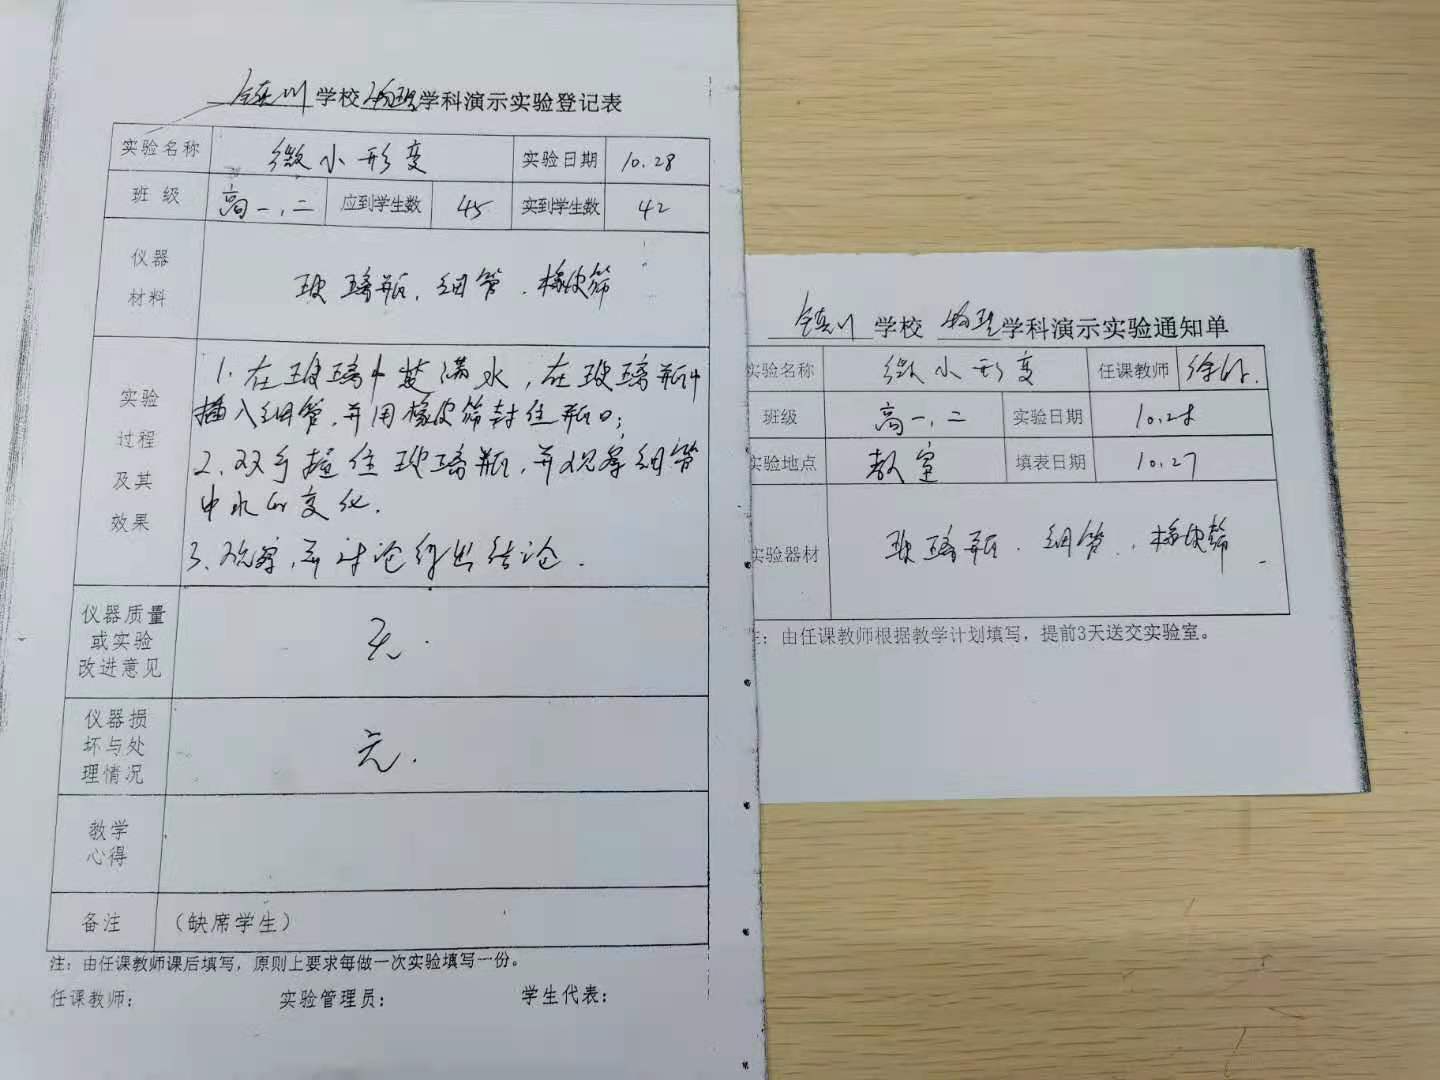 镇川学校物理学科演示实验登记表
实验名称 微小形变 实验日期 10.28
班级 高一、二 应到学生数 45 实到学生数 42
仪器材料 玻璃瓶、细管、橡皮筛
实验过程及其效果
1.在玻璃中装满水,在玻璃瓶中
插入细管,并用橡皮筛封住瓶口;
2.双手握住玻璃瓶,并观察细管
中水的变化.
3.观察,并讨论得出结论.
仪器质量或实验改进意见 无.
仪器损坏与处理情况 无.
教学心得
备注 (缺席学生)
注: 由任课教师课后填写, 原则上要求每做一次实验填写一份。
任课教师: 实验管理员: 学生代表:
镇川学校 物理学科演示实验通知单
实验名称 微小形变 任课教师 徐
班级 高一、二 实验日期 10.28
实验地点 教室 填表日期 10.27
实验器材 玻璃瓶、细管、橡皮筛.
注: 由任课教师根据教学计划填写, 提前3天送交实验室。